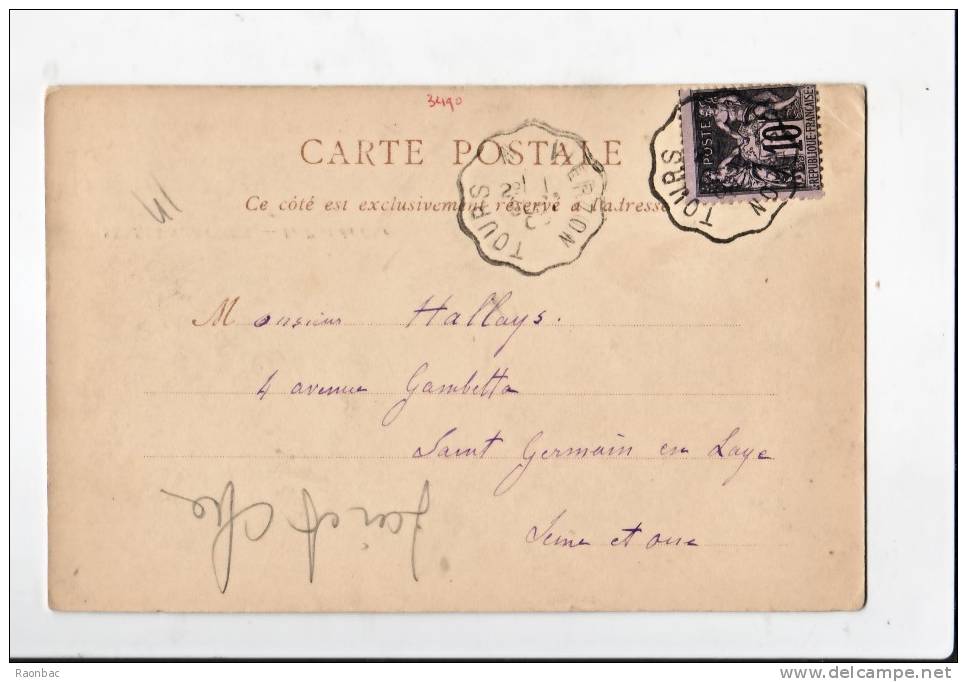 3490
CARTE POSTALE
Ce côté est exclusivement réservé à l'adresse
VIERZON
TOURS
POSTES
10
REPUBLIQUE FRANÇAISE
TOURS
Monsieur Hallays.
4 avenue Gambetta
Saint Germain en Laye
Seine et oise
Raonbac
delcampe.net